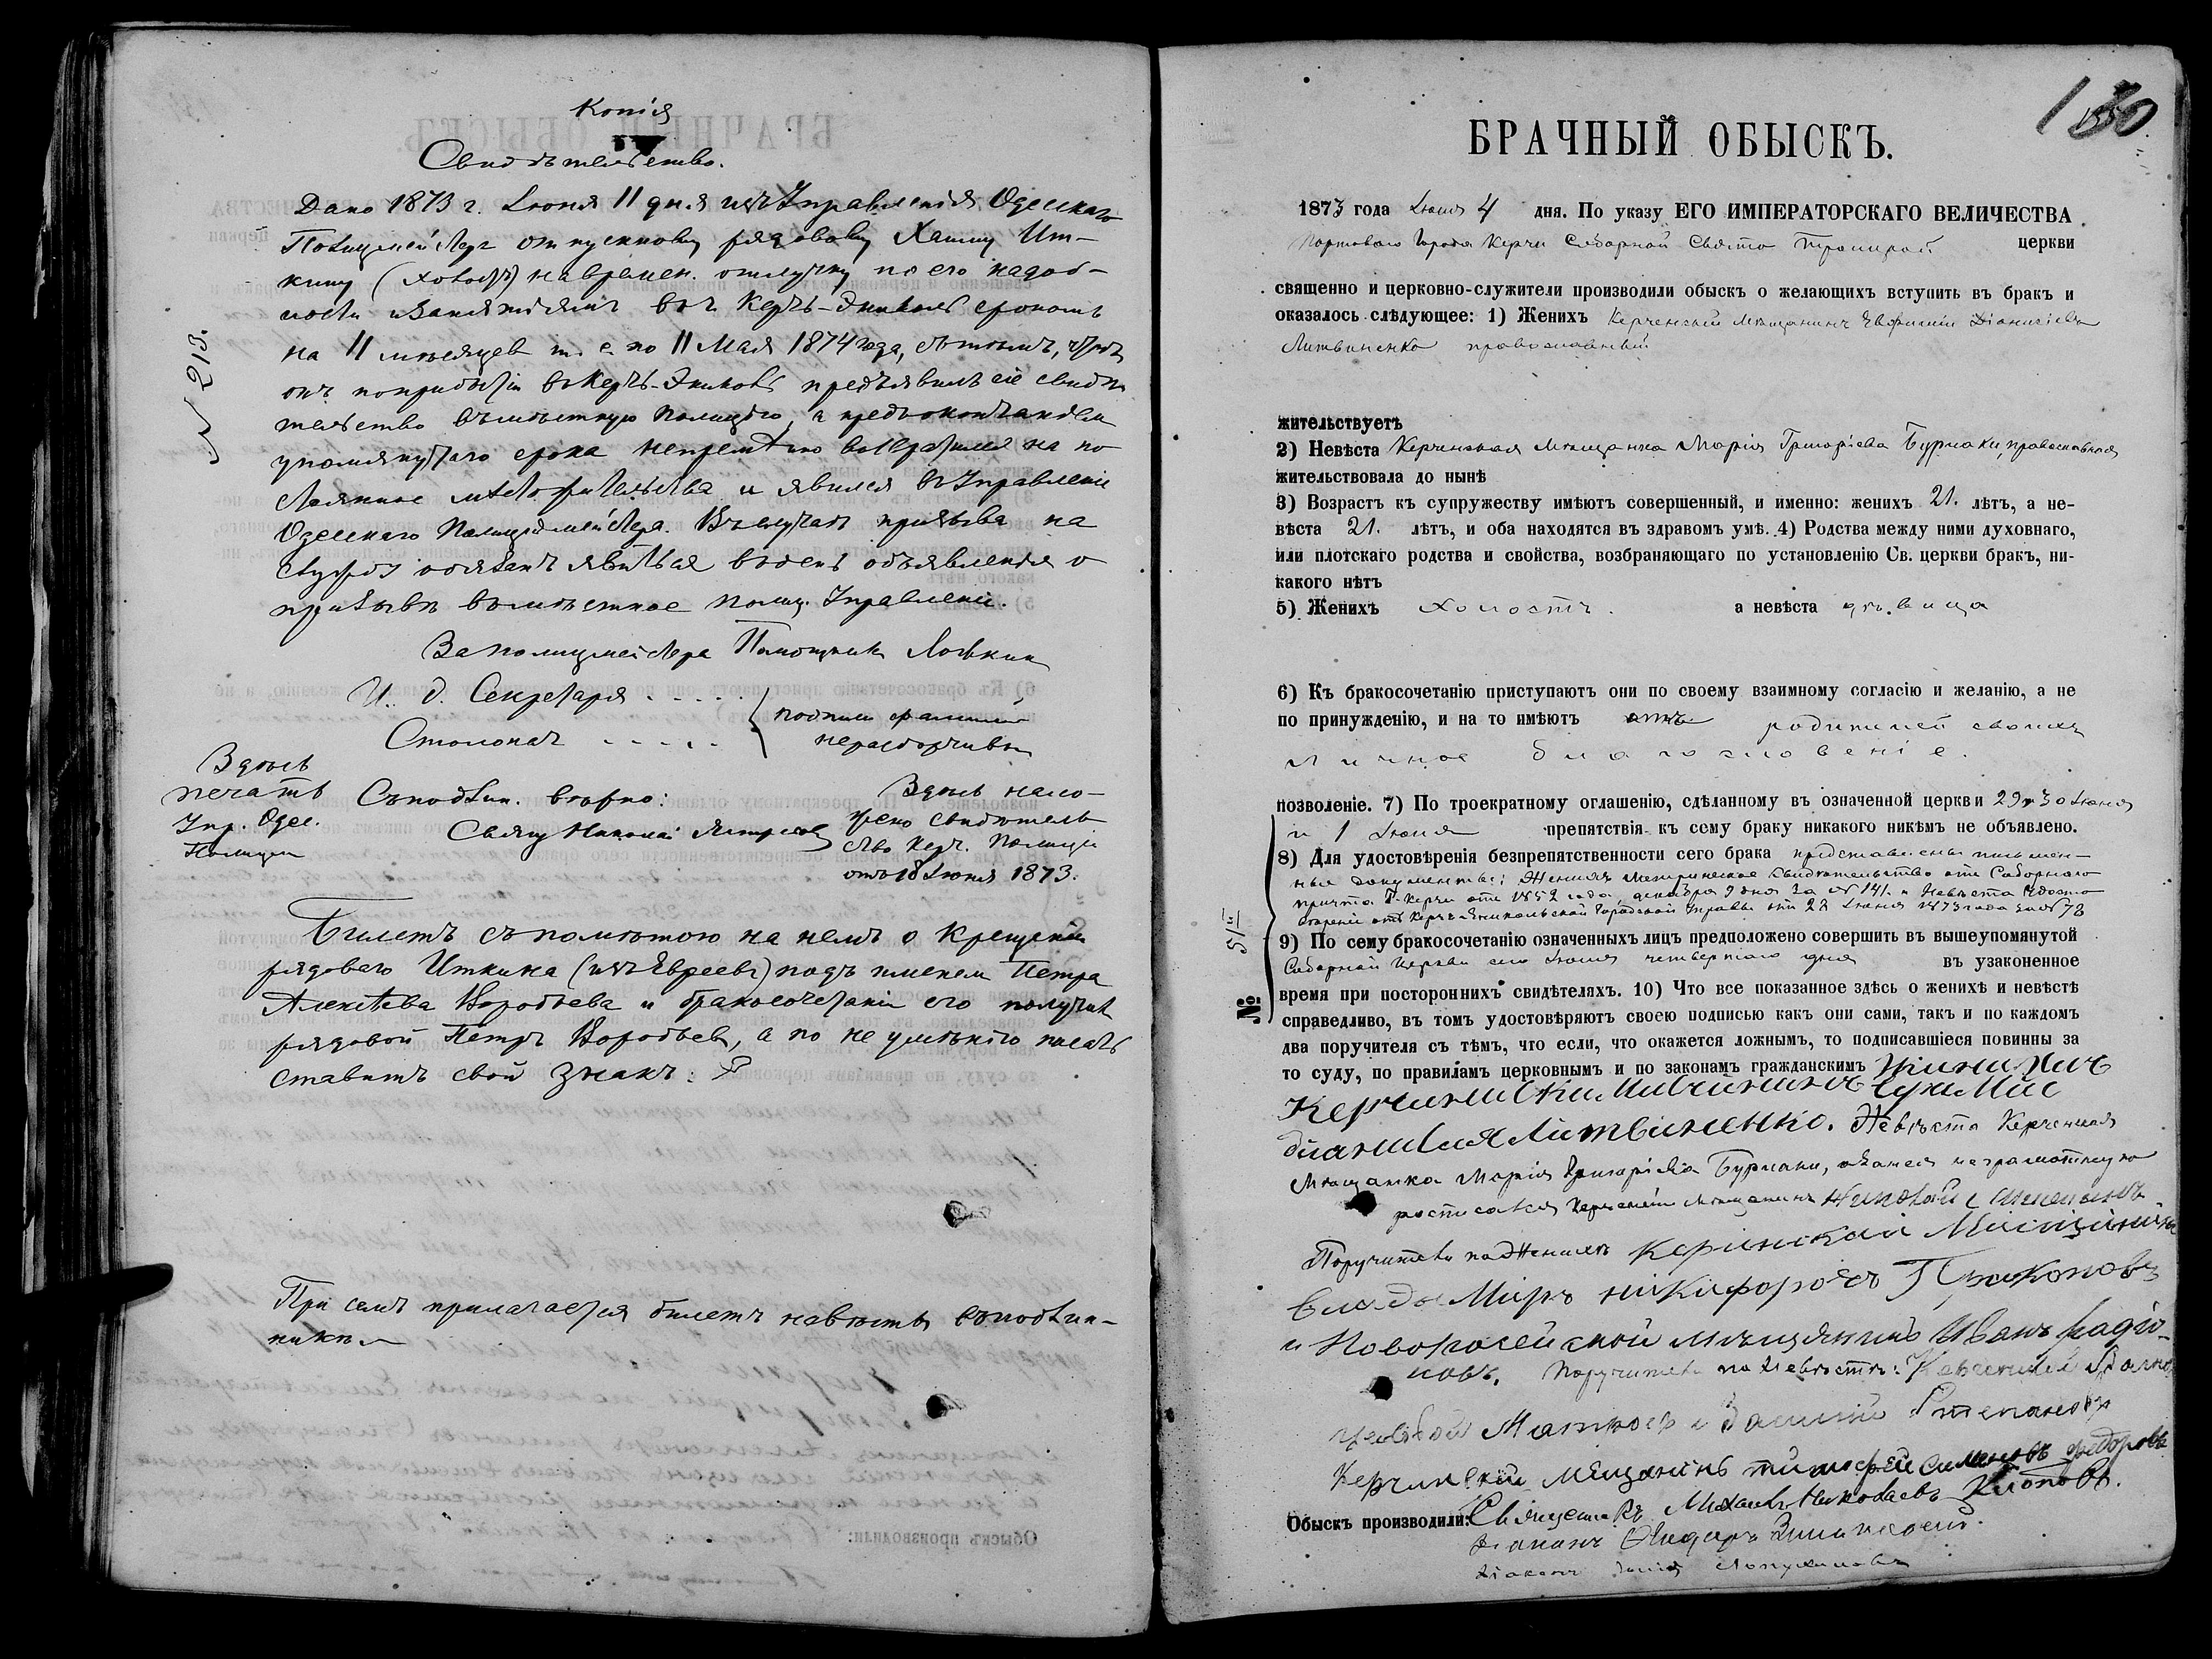 Копія
Свидѣтельство.
Дано 1873 г. Іюня 11 дня изъ Управленія Одесскаго
Полицмейстера отпускному рядовому Хаиму Ит-
кину (холостъ) на времен. отлучку по его надоб-
ности и занятіямъ въ г. Керчь-Эниколь срокомъ
на 11 мѣсяцев т. е. по 11 Мая 1874 года, съ тѣмъ, чтобы
онъ по прибытіи в Керчь-Эниколь предъявилъ сіе свидѣ
тельство въ мѣстную Полицію, а предъ окончаніем
упомянутаго срока непремѣнно возвратился на по
стоянное мѣсто жительства и явился в Управленіе
Одесскаго Полиціймейстера. В случаѣ призыва на
службу обязанъ явиться в день объявленія о
призывѣ въ мѣстное Полиц. Управленіе.
За полицмейстера Помощник
И. д. Секретаря . . . .
подписи фамилій
Столонач . . . . .
неразборчивы
№ 213.
Здѣсь
печать
Упр. Одес.
Полиции
Съ подлин. вѣрно:
Свящ Николай
Здѣсь нало-
жено свидѣтель
ство Керч. Полиціи
отъ 18 Іюня 1873.
Билетъ съ помѣтою на немъ о крещеніи
рядоваго Иткина (изъ Евреевъ) подъ именем Петра
Алексѣева Воробьева и бракосочетаніи его получил
рядовой Петръ Воробьев, а по не умѣнію писать
ставитъ свой знакъ:
При семъ прилагается билетъ невѣсты въ подлин-
никѣ
130
БРАЧНЫЙ ОБЫСКЪ.
1873 года Іюля 4 дня. По указу ЕГО ИМПЕРАТОРСКАГО ВЕЛИЧЕСТВА
Портоваго Города Керчи Соборной Свято Троицкой церкви
священно и церковно-служители производили обыскъ о желающихъ вступить въ бракъ и
оказалось слѣдующее: 1) Женихъ Керченскій Мѣщанинъ Евфимій Діонисіевъ
Литвиненко православный
жительствуетъ
2) Невѣста Керченская Мѣщанка Марія Григоріева Бурлаки, православная
жительствовала до нынѣ
3) Возрастъ къ супружеству имѣютъ совершенный, и именно: женихъ 21. лѣтъ, а не-
вѣста 21. лѣтъ, и оба находятся въ здравомъ умѣ. 4) Родства между ними духовнаго,
или плотскаго родства и свойства, возбраняющаго по установленію Св. церкви бракъ, ни-
какого нѣтъ
5) Женихъ холостъ. а невѣста дѣвица
6) Къ бракосочетанію приступаютъ они по своему взаимному согласію и желанію, а не
по принужденію, и на то имѣютъ отъ родителей своихъ
личное благословеніе.
позволеніе. 7) По троекратному оглашенію, сдѣланному въ означенной церкви 29 и 30 Іюня
и 1 Іюля препятствія къ сему браку никакого никѣмъ не объявлено.
8) Для удостовѣренія безпрепятственности сего брака представлены письмен-
ные документы: Женихъ метрическое свидѣтельство отъ Соборнаго
причта г. Керчи отъ 1852 года, декабря 9 дня за № 141. и Невѣста Удосто
вѣреніе отъ Керчь-Еникольской Городской Управы отъ 28 Іюня 1873 года за № 78
№ 51
9) По сему бракосочетанію означенныхъ лицъ предположено совершить въ вышеупомянутой
Соборной Церкви сего Іюля четвертаго дня въ узаконенное
время при постороннихъ свидѣтеляхъ. 10) Что все показанное здѣсь о женихѣ и невѣстѣ
справедливо, въ томъ удостовѣряютъ своею подписью какъ они сами, такъ и по каждомъ
два поручителя съ тѣмъ, что если, что окажется ложнымъ, то подписавшіеся повинны за
то суду, по правиламъ церковнымъ и по законамъ гражданскимъ
Литвіненко. Невѣста Керченская
Мѣщанка Марія Григоріева Бурлаки, а за нея неграмотную
росписался Керченскій Мѣщанинъ Николай
Поручители по Женихѣ Мѣщанинъ
Владемиръ Никифоровъ
и Новоросейской мѣщянинъ Иванъ Радіо-
новъ. Поручители по Невѣстѣ:
Матвѣй Степановъ
Мѣщанинъ Тимофей Семеновъ Федоровъ
Обыскъ производили: Священникъ Михаилъ Николаевъ
Діаконъ
Діаконъ